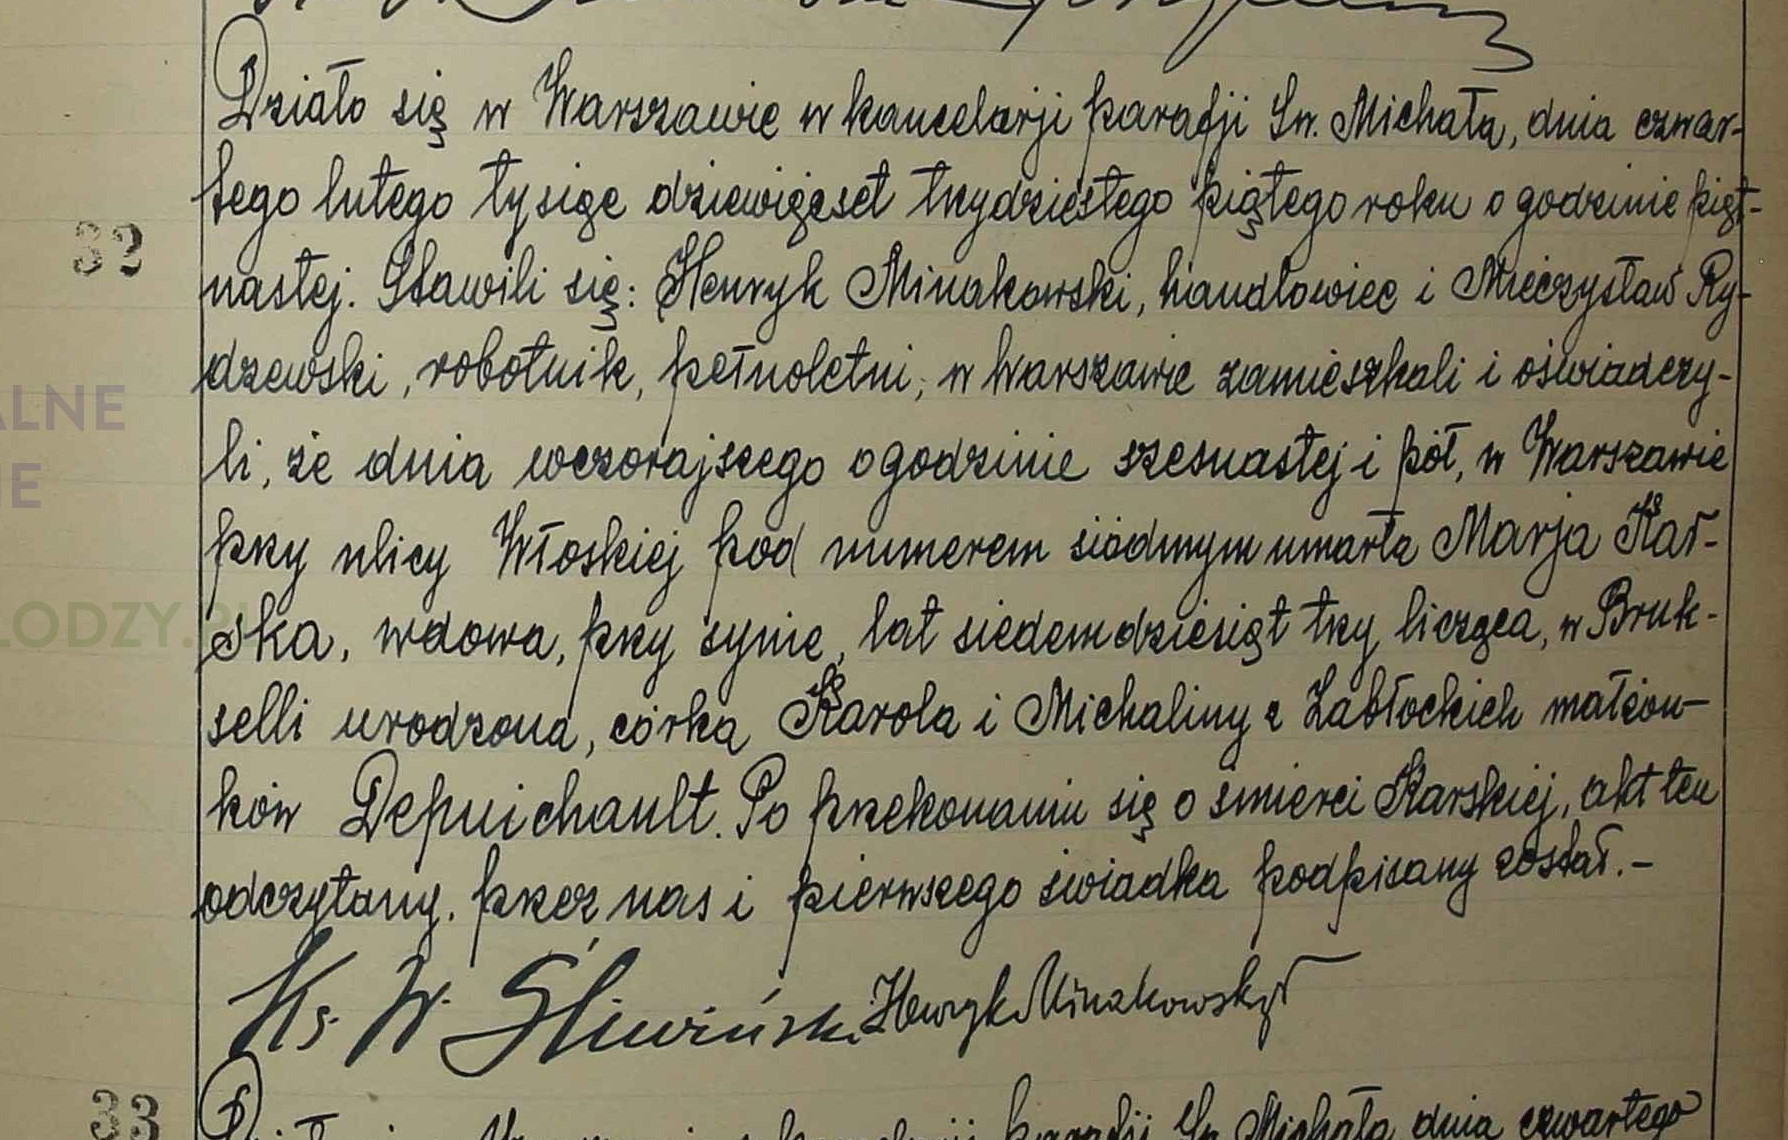 Działo się w Warszawie w kancelarji parafji Św. Michała, dnia czwar-
tego lutego tysiąc dziewięćset trzydziestego piątego roku o godzinie pięt-
32
nastej. Stawili się: Henryk Minakowski, handlowiec i Mieczysław Ry-
dzewski, robotnik, pełnoletni, w Warszawie zamieszkali i oświadczy-
ALNE
li, że dnia wczorajszego o godzinie szesnastej i pół, w Warszawie
IE
przy ulicy Włoskiej pod numerem siódmym umarła Marja Kar-
LODZY.PL
ska, wdowa, przy synie, lat siedemdziesiąt trzy licząca, w Bruk-
selli urodzona, córka Karola i Michaliny z Zabłockich małżon-
ków Depuichault. Po przekonaniu się o śmierci Karskiej, akt ten
odczytany, przez nas i pierwszego świadka podpisany został.-
Ks. W. Śliwiński Henryk Minakowski
33
Działo się w Warszawie w kancelarji parafji Św. Michała dnia czwartego